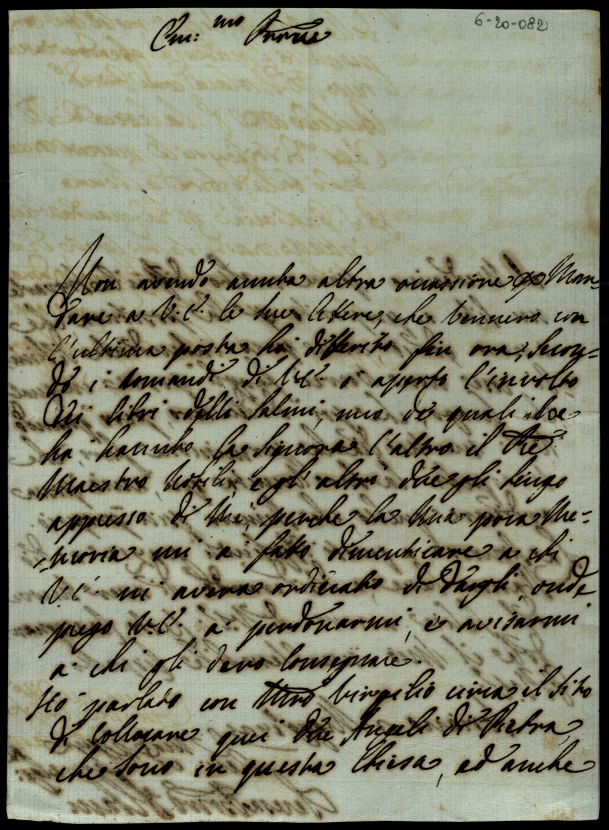 6-20-082
Em:mo Prñe
Non avendo avuta altra occassione p Man-
dare a V.E. le sue lettere, che vennero con
l'ultima posta hò differito fin ora, secon-
do i comandi di V.E. ò aperto l'involto
dei libri delli Salmi, uno de quali
hà havuto la Signora l'altro il
Maestro e gl'altri due gli tengo
appresso di Me perche la mia poca Me-
moria mi à fatto dimenticare a chi
V.E. mi aveva ordinato di dargli, onde
prego V.E. à perdonarmi, e avisarmi
à chi gli devo consegnare.
Hò parlato con Virgilio circa il sito
di collocare quei due Angeli di Pietra,
che sono in questa Chiesa, ed anche